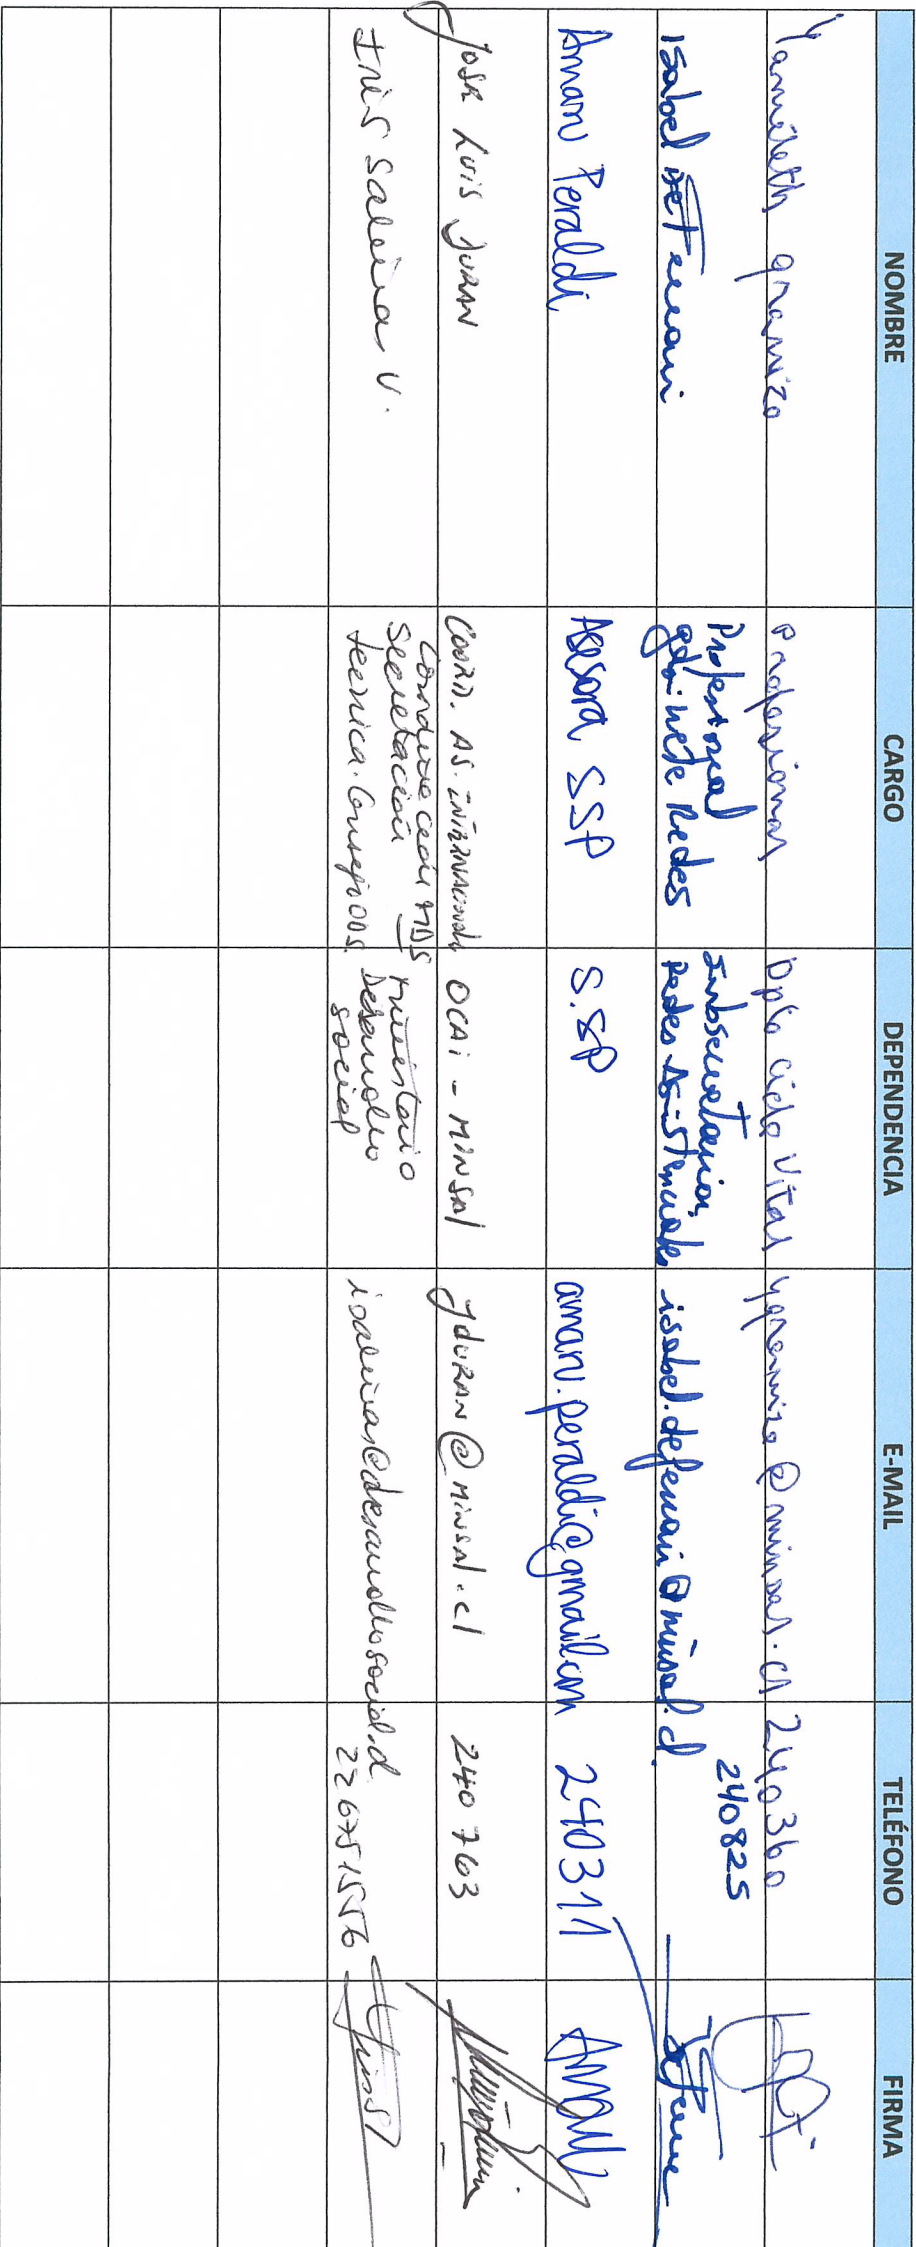 NOMBRE CARGO DEPENDENCIA E-MAIL TELÉFONO FIRMA
Yamileth Granizo Profesional Dpto Ciclo Vital ygranizo@minsal.cl 240360
Isabel Deferrari Profesional gabinete Redes Subsecretaria Redes Asistenciales isabel.deferrari@minsal.cl 240825
Amaru Peraldi Asesora SSP S.SP amaru.peraldi@gmail.com 240311
Jose Luis Duran Coord. As. Internacionales OCAi - Minsal jduran@minsal.cl 240763
Inés Salinas V. Secretaria técnica. Ministerio Desarrollo social isalinas@desarrollosocial.cl 226751556